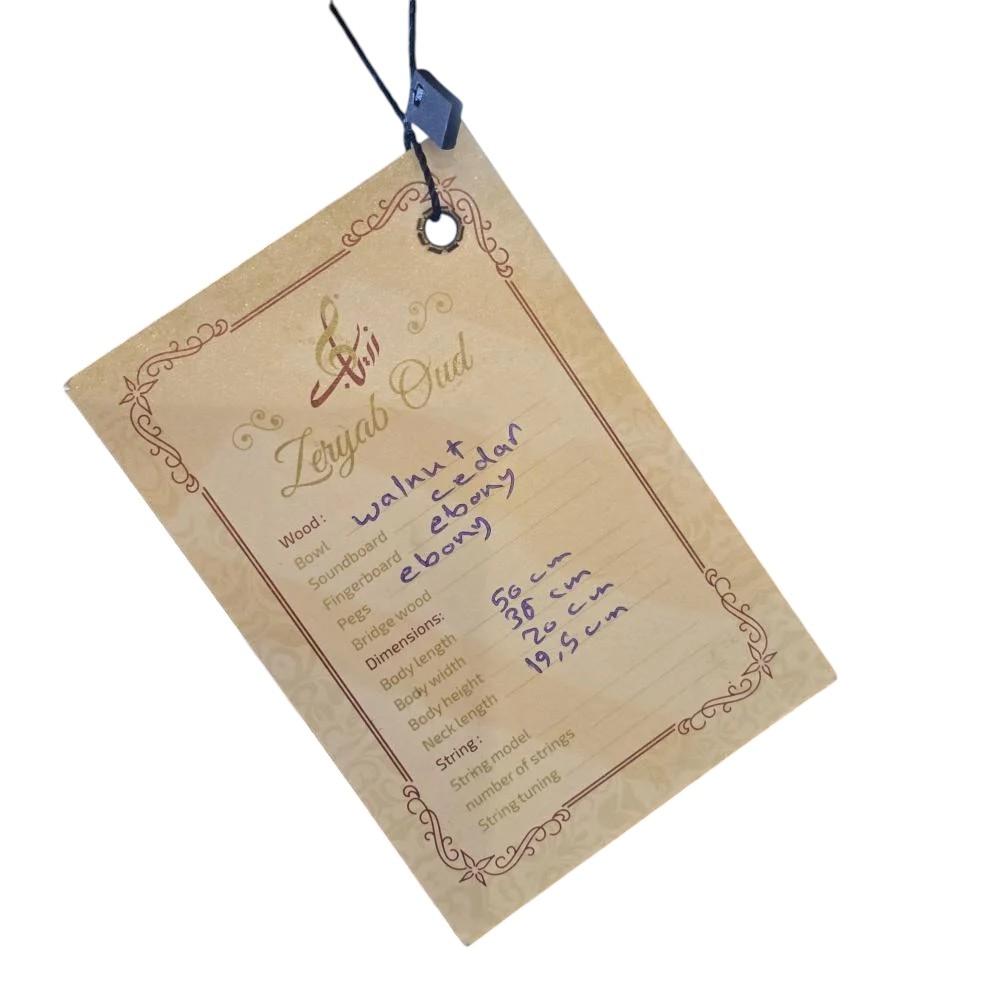 زریاب
Zeryab Oud
Wood:
Bowl walnut
Soundboard cedar
Fingerboard ebony
Pegs ebony
Bridge wood
Dimensions:
Body length 50 cm
Body width 36 cm
Body height 20 cm
Neck length 19,5 cm
String:
String model
number of strings
String tuning